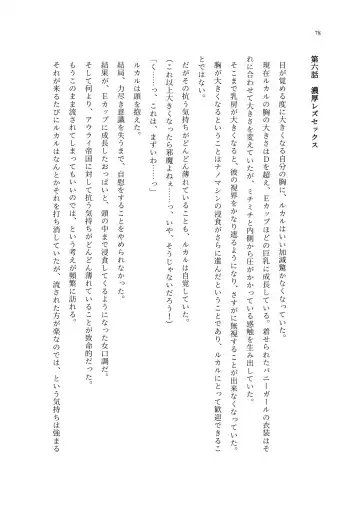 78
第六話　濃厚レズセックス
目が覚める度に大きくなる自分の胸に、ルカルはいい加減驚かなくなっていた。
現在ルカルの胸の大きさはDを超え、Eカップほどの巨乳に成長している。着せられたバニーガールの衣装はそ
れに合わせて大きさを変えていたが、ミチミチと内側から圧がかかっている感触を生み出していた。
そこまで乳房が大きくなると、彼の視界をかなり遮るようになり、さすがに無視することが出来なくなっていた。
胸が大きくなるということはナノマシンの浸食がさらに進んだということであり、ルカルにとって歓迎できるこ
とではない。
だがその抗う気持ちがどんどん薄れていることも、ルカルは自覚していた。
（これ以上大きくなったら邪魔よねぇ……っ、いや、そうじゃないだろう！）
「く……っ、これは、まずいわ……っ」
ルカルは頭を抱えた。
結局、力尽き意識を失うまで、自慰をすることをやめられなかった。
結果が、Eカップに成長したおっぱいと、頭の中まで浸食してくるようになった女口調だ。
そして何より、アウライ帝国に対して抗う気持ちがどんどん薄れていることが致命的だった。
このまま流されてしまってもいいのでは、という考えが頻繁に訪れる。
それが来るたびにルカルはなんとかそれを打ち消していたが、流された方が楽なのでは、という気持ちは強まる